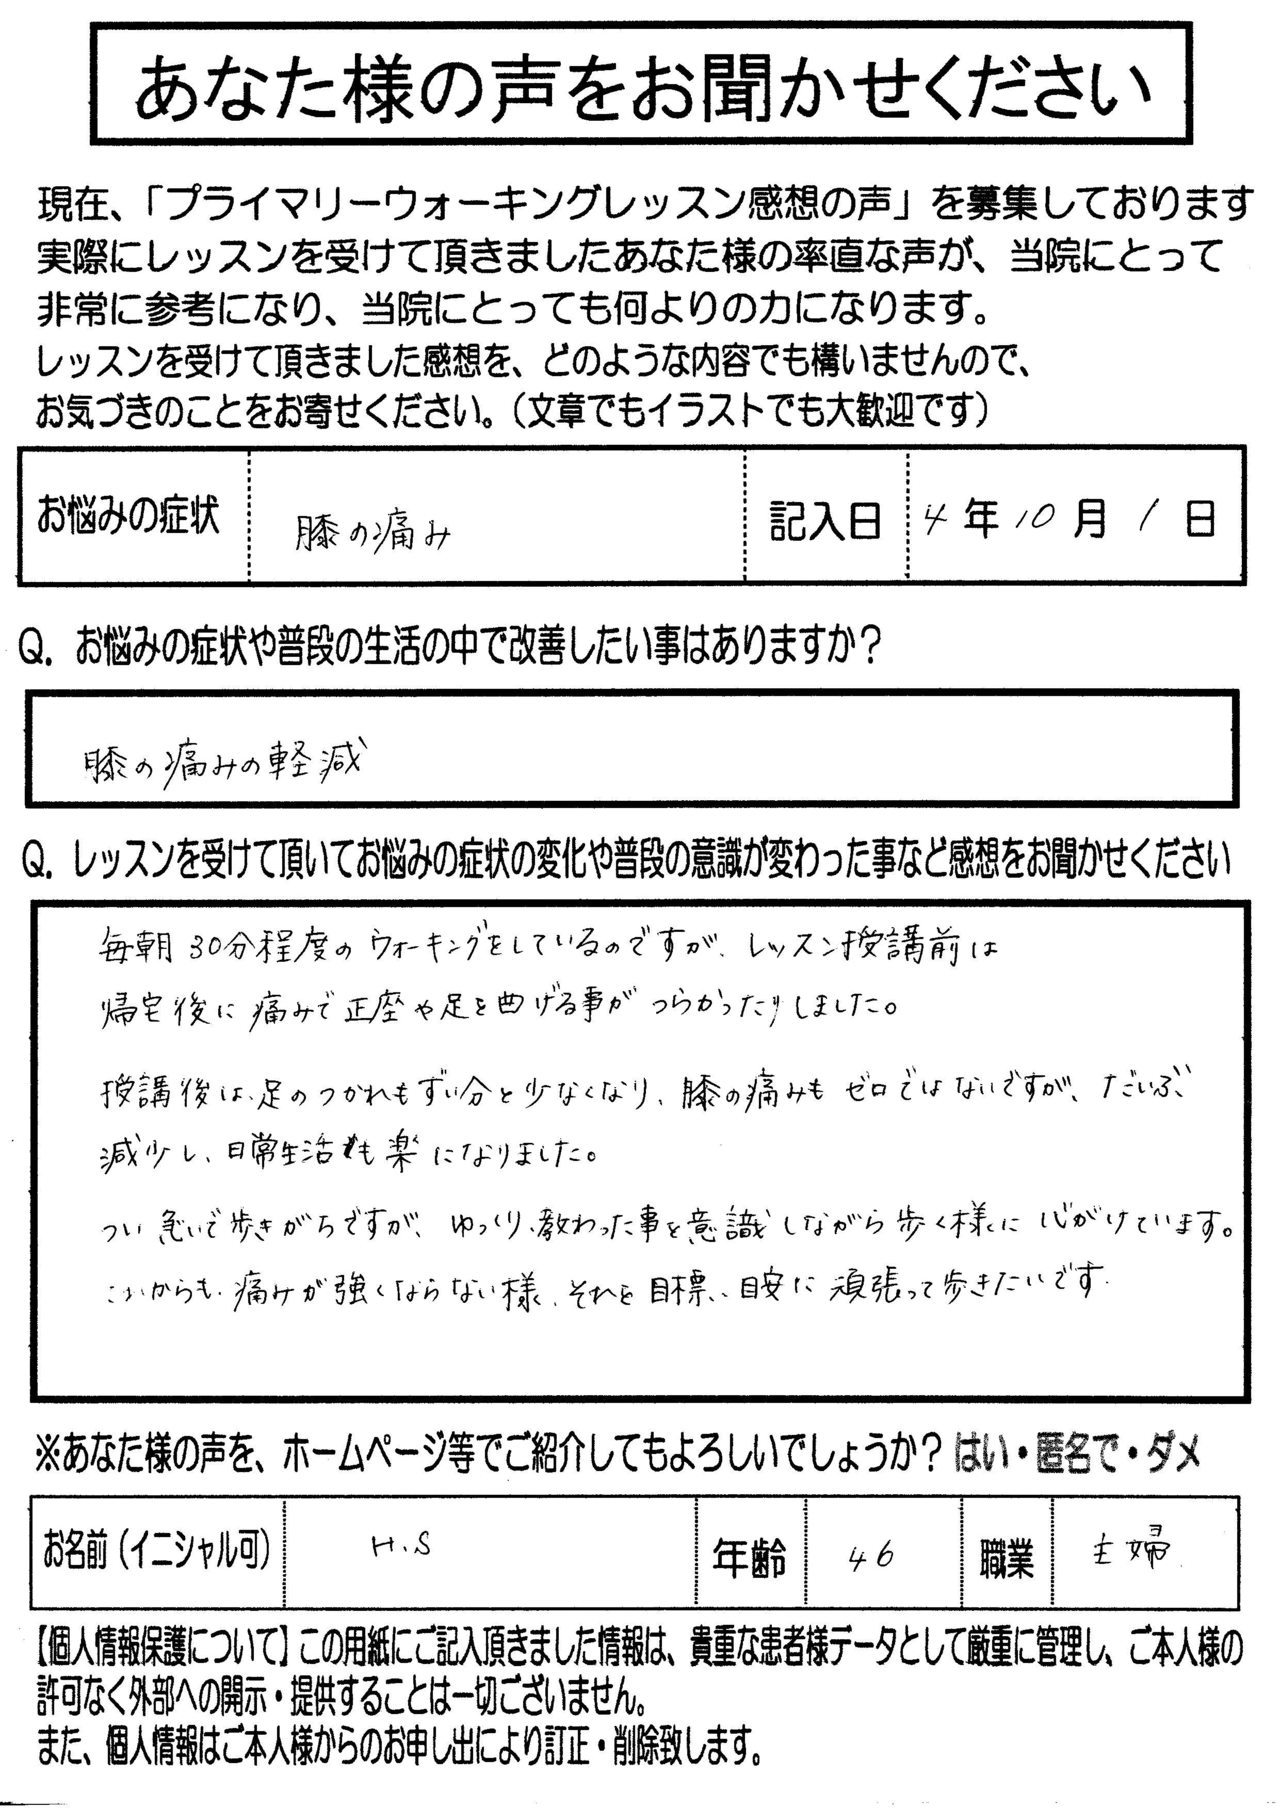 あなた様の声をお聞かせください
現在、「プライマリーウォーキングレッスン感想の声」を募集しております
実際にレッスンを受けて頂きましたあなた様の率直な声が、当院にとって
非常に参考になり、当院にとっても何よりの力になります。
レッスンを受けて頂きました感想を、どのような内容でも構いませんので、
お気づきのことをお寄せください。（文章でもイラストでも大歓迎です）
お悩みの症状 膝の痛み 記入日 4年10月1日
Q. お悩みの症状や普段の生活の中で改善したい事はありますか？
膝の痛みの軽減
Q. レッスンを受けて頂いてお悩みの症状の変化や普段の意識が変わった事など感想をお聞かせください
毎朝30分程度のウォーキングをしているのですが、レッスン授講前は
帰宅後に痛みで正座や足を曲げる事がつらかったりしました。
授講後は、足のつかれもずい分と少なくなり、膝の痛みもゼロではないですが、だいぶ
減少し、日常生活も楽になりました。
つい急いで歩きがちですが、ゆっくり、教わった事を意識しながら歩く様に心がけています。
これからも、痛みが強くならない様、それを目標、目安に頑張って歩きたいです。
※あなた様の声を、ホームページ等でご紹介してもよろしいでしょうか？はい・匿名で・ダメ
お名前（イニシャル可） H.S 年齢 46 職業 主婦
【個人情報保護について】この用紙にご記入頂きました情報は、貴重な患者様データとして厳重に管理し、ご本人様の
許可なく外部への開示・提供することは一切ございません。
また、個人情報はご本人様からのお申し出により訂正・削除致します。